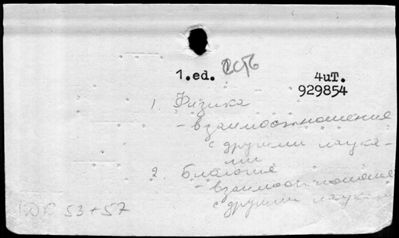 1.ed.
4uT.
929854
1 Физика
- взаимоотношение
с другими наука-
ми
2. Биология
- взаимоотношение
с другими наука
53+57